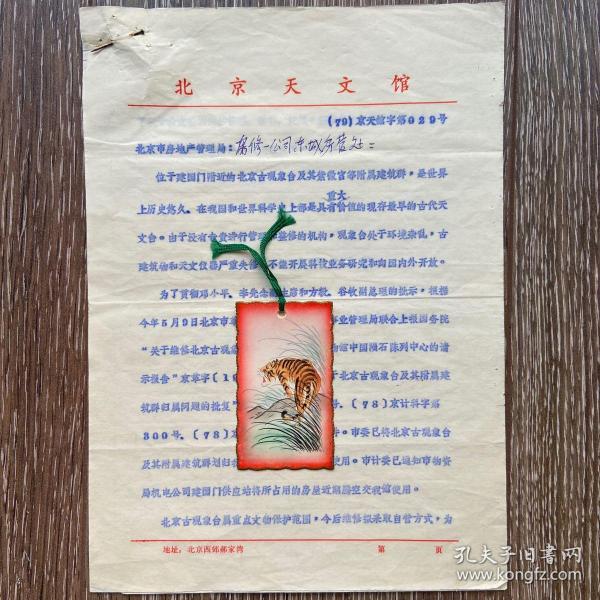 北京天文馆
(79)京天馆字第029号
北京市房地产管理局：房修一公司东城
位于建国门附近的北京古观象台及其紫微宫等附属建筑群，是世界
重大
上历史悠久、在我国和世界科学史上都是具有价值的现存最早的古代天
文台。由于没有 整修的机构，观象台处于环境杂乱，古
建筑物和天文仪器严重失修 不能开展科技业务研究和向国内外开放。
为了贯彻邓小平、李先念 主席和方毅、谷牧副总理的批示，根据
今年5月9日北京市 事业管理局联合上报国务院
“关于维修北京古观 馆中国陨石陈列中心的请
示报告”京革字〔19 于北京古观象台及其附属建
筑群归属问题的批复” 号、〔78〕京计科字第
300号、〔78〕京 。市委已将北京古观象台
及其附属建筑群划归 使用。市计委已通知市物资
局机电公司建国门供应站将所占用的房屋近期腾空交我馆使用。
北京古观象台属重点文物保护范围，今后维修拟采取自营方式，为
地址：北京西郊郝家湾 第 页
孔夫子旧书网
www.kongfz.com